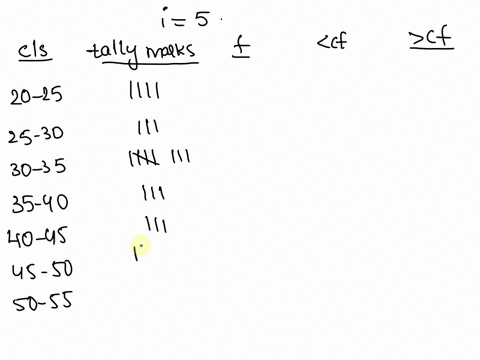 i = 5 .
c/s tally marks f <cf >cf
20-25 ||||
25-30 |||
30-35 |||| |||
35-40 |||
40-45 |||
45-50 |
50-55